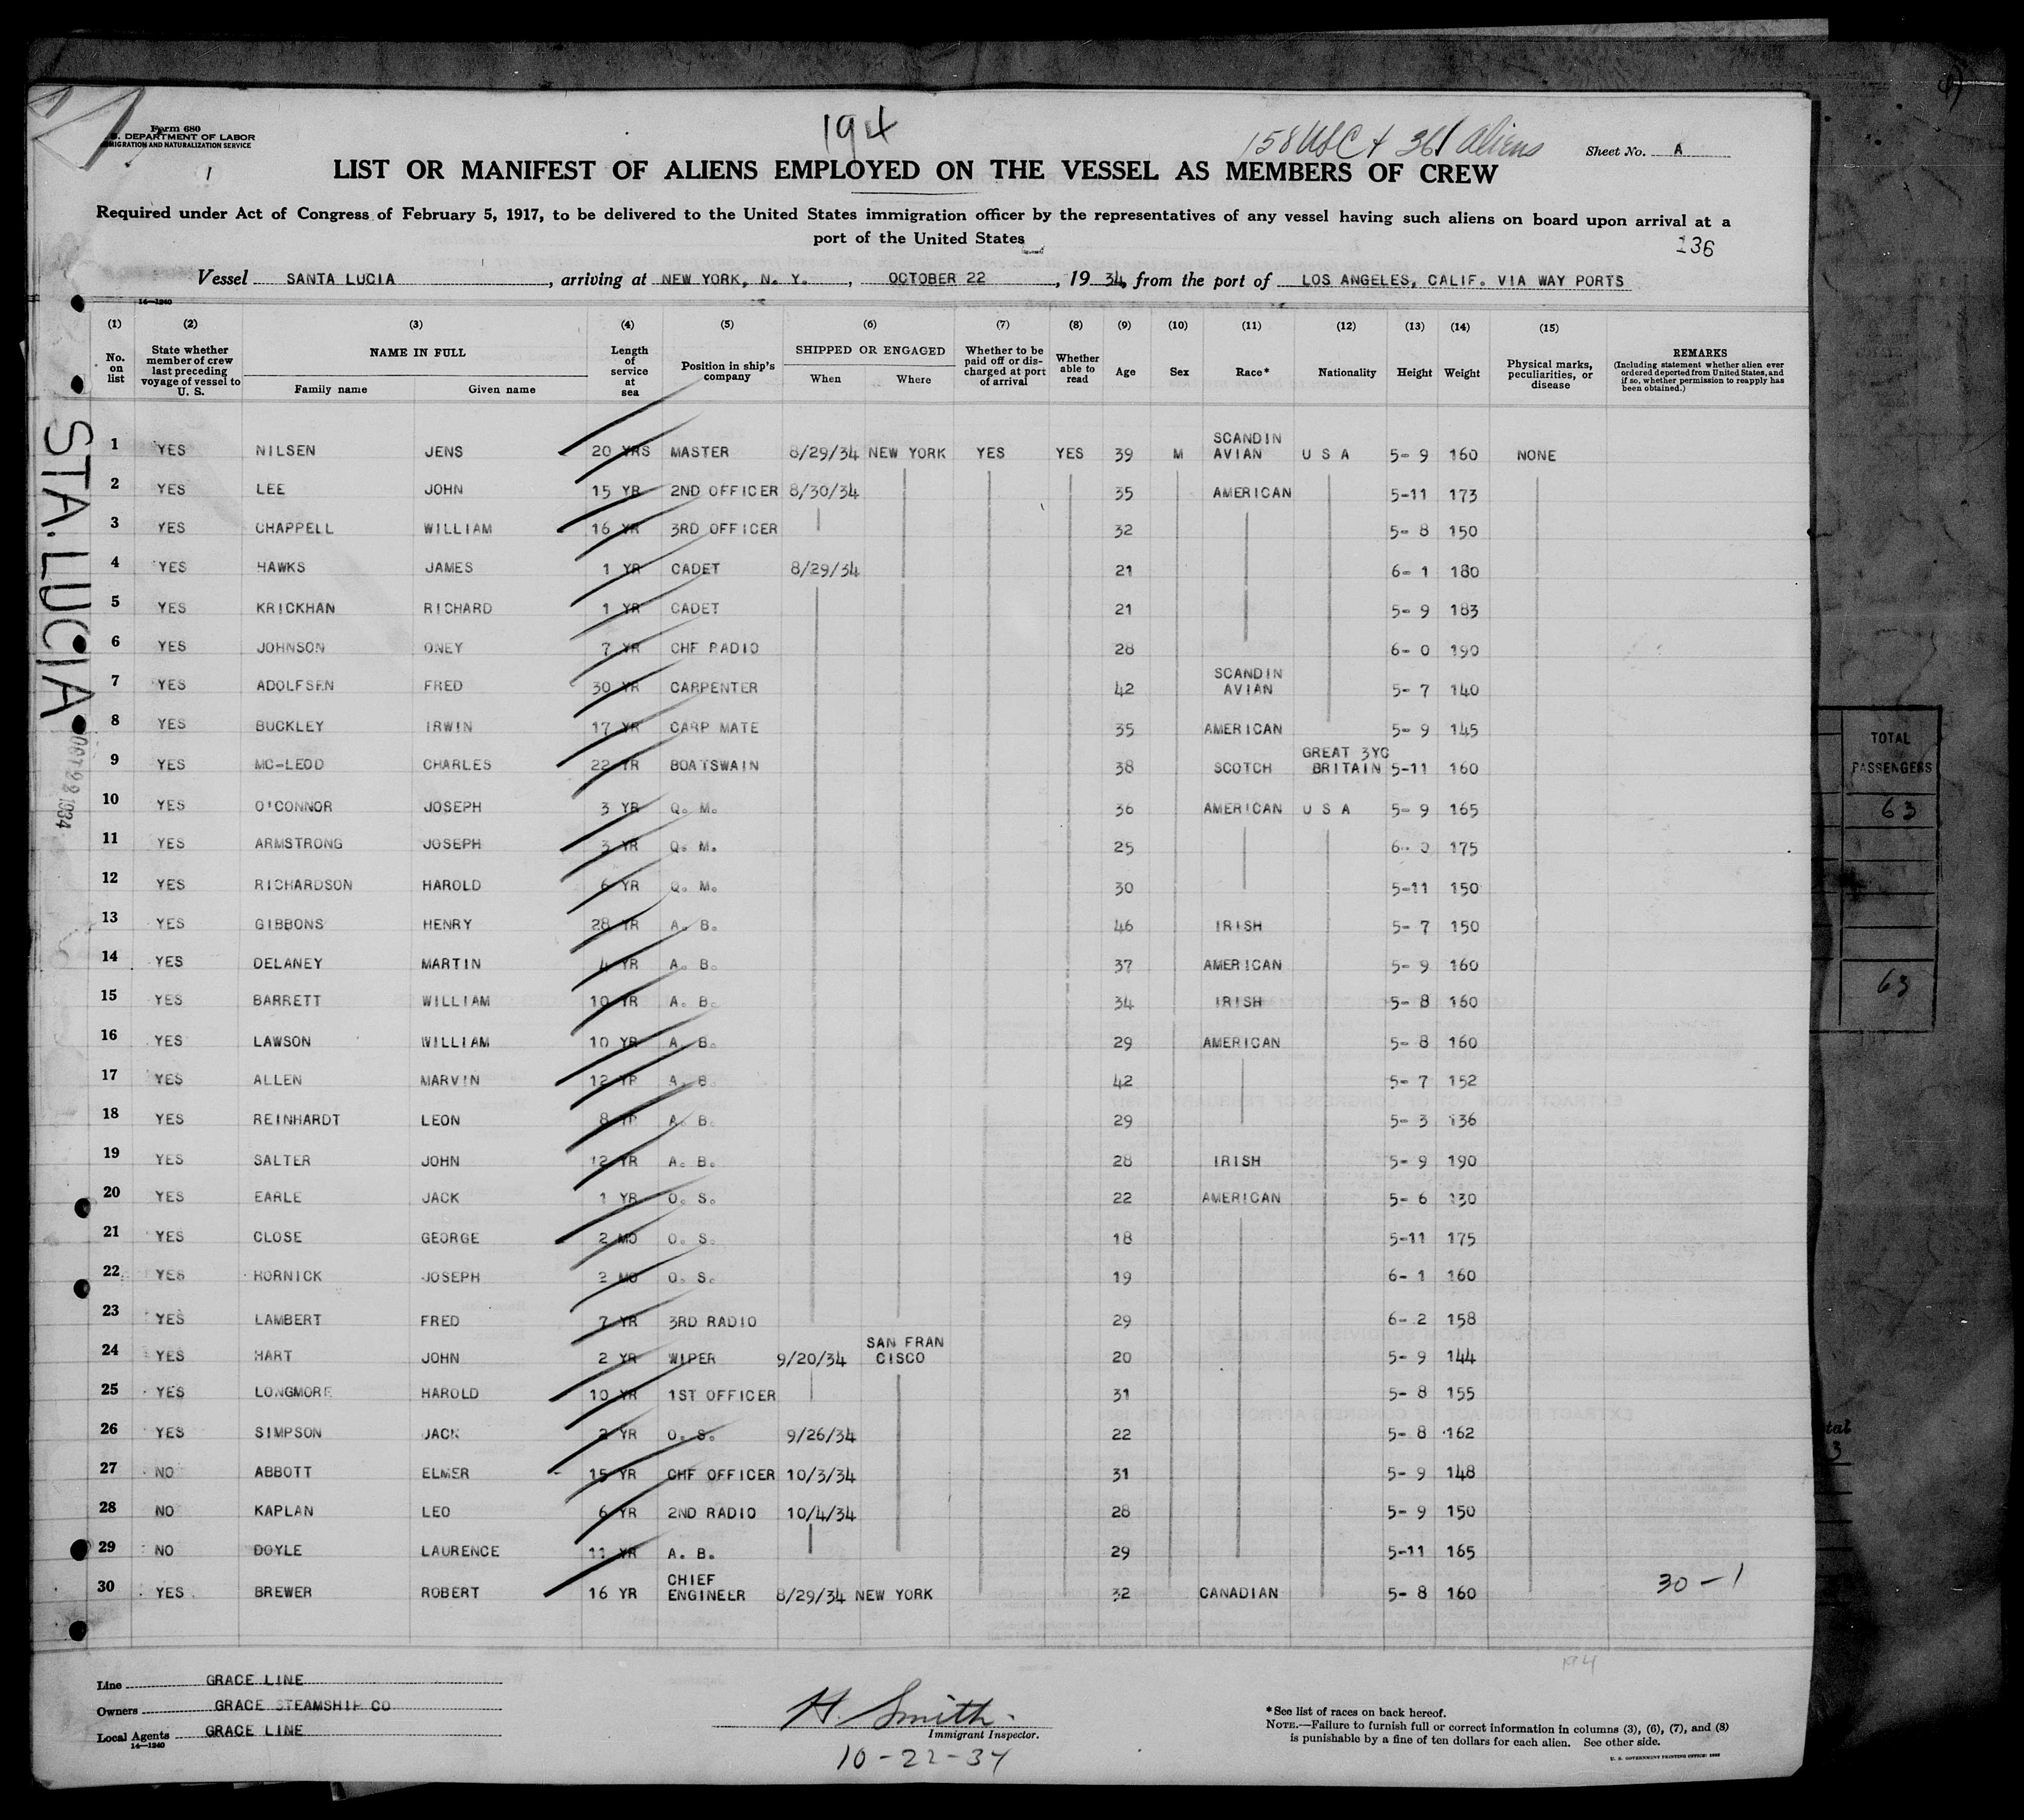 Form 680
U.S. DEPARTMENT OF LABOR
IMMIGRATION AND NATURALIZATION SERVICE
1
194
158 USC + 361 Aliens
Sheet No. A
LIST OR MANIFEST OF ALIENS EMPLOYED ON THE VESSEL AS MEMBERS OF CREW
Required under Act of Congress of February 5, 1917, to be delivered to the United States immigration officer by the representatives of any vessel having such aliens on board upon arrival at a
port of the United States
136
Vessel SANTA LUCIA, arriving at NEW YORK, N. Y., OCTOBER 22, 1934, from the port of LOS ANGELES, CALIF. VIA WAY PORTS
14—1240
(1) (2) (3) (4) (5) (6) (7) (8) (9) (10) (11) (12) (13) (14) (15)
No. on list
State whether member of crew last preceding voyage of vessel to U. S.
NAME IN FULL
Family name Given name
Length of service at sea
Position in ship's company
SHIPPED OR ENGAGED
When Where
Whether to be paid off or discharged at port of arrival
Whether able to read
Age
Sex
Race*
Nationality
Height
Weight
Physical marks, peculiarities, or disease
REMARKS
(Including statement whether alien ever ordered deported from United States, and if so, whether permission to reapply has been obtained.)
1 YES NILSEN JENS 20 YRS MASTER 8/29/34 NEW YORK YES YES 39 M SCANDINAVIAN U S A 5-9 160 NONE
2 YES LEE JOHN 15 YR 2ND OFFICER 8/30/34 35 AMERICAN 5-11 173
3 YES CHAPPELL WILLIAM 16 YR 3RD OFFICER 32 5-8 150
4 YES HAWKS JAMES 1 YR CADET 8/29/34 21 6-1 180
5 YES KRICKHAN RICHARD 1 YR CADET 21 5-9 183
6 YES JOHNSON ONEY 7 YR CHF RADIO 28 6-0 190
7 YES ADOLFSEN FRED 30 YR CARPENTER 42 SCANDINAVIAN 5-7 140
8 YES BUCKLEY IRWIN 17 YR CARP MATE 35 AMERICAN 5-9 145
9 YES MC-LEOD CHARLES 22 YR BOATSWAIN 38 SCOTCH GREAT BRITAIN 3YC 5-11 160
10 YES O'CONNOR JOSEPH 3 YR Q. M. 36 AMERICAN U S A 5-9 165
11 YES ARMSTRONG JOSEPH 3 YR Q. M. 25 6-0 175
12 YES RICHARDSON HAROLD 6 YR Q. M. 30 5-11 150
13 YES GIBBONS HENRY 28 YR A. B. 46 IRISH 5-7 150
14 YES DELANEY MARTIN 4 YR A. B. 37 AMERICAN 5-9 160
15 YES BARRETT WILLIAM 10 YR A. B. 34 IRISH 5-8 160
16 YES LAWSON WILLIAM 10 YR A. B. 29 AMERICAN 5-8 160
17 YES ALLEN MARVIN 12 YR A. B. 42 5-7 152
18 YES REINHARDT LEON 8 YR A. B. 29 5-3 136
19 YES SALTER JOHN 12 YR A. B. 28 IRISH 5-9 190
20 YES EARLE JACK 1 YR O. S. 22 AMERICAN 5-6 130
21 YES CLOSE GEORGE 2 MO O. S. 18 5-11 175
22 YES HORNICK JOSEPH 2 MO O. S. 19 6-1 160
23 YES LAMBERT FRED 7 YR 3RD RADIO 29 6-2 158
24 YES HART JOHN 2 YR WIPER 9/20/34 SAN FRANCISCO 20 5-9 144
25 YES LONGMORE HAROLD 10 YR 1ST OFFICER 31 5-8 155
26 YES SIMPSON JACK 2 YR O. S. 9/26/34 22 5-8 162
27 NO ABBOTT ELMER 15 YR CHF OFFICER 10/3/34 31 5-9 148
28 NO KAPLAN LEO 6 YR 2ND RADIO 10/4/34 28 5-9 150
29 NO DOYLE LAURENCE 11 YR A. B. 29 5-11 165
30 YES BREWER ROBERT 16 YR CHIEF ENGINEER 8/29/34 NEW YORK 32 CANADIAN 5-8 160
30-1
194
STA. LUCIA
OCT 22 1934
Line GRACE LINE
Owners GRACE STEAMSHIP CO
Local Agents GRACE LINE
14—1240
H. Smith.
Immigrant Inspector.
10-22-34
*See list of races on back hereof.
NOTE.—Failure to furnish full or correct information in columns (3), (6), (7), and (8)
is punishable by a fine of ten dollars for each alien. See other side.
TOTAL
PASSENGERS
63
63